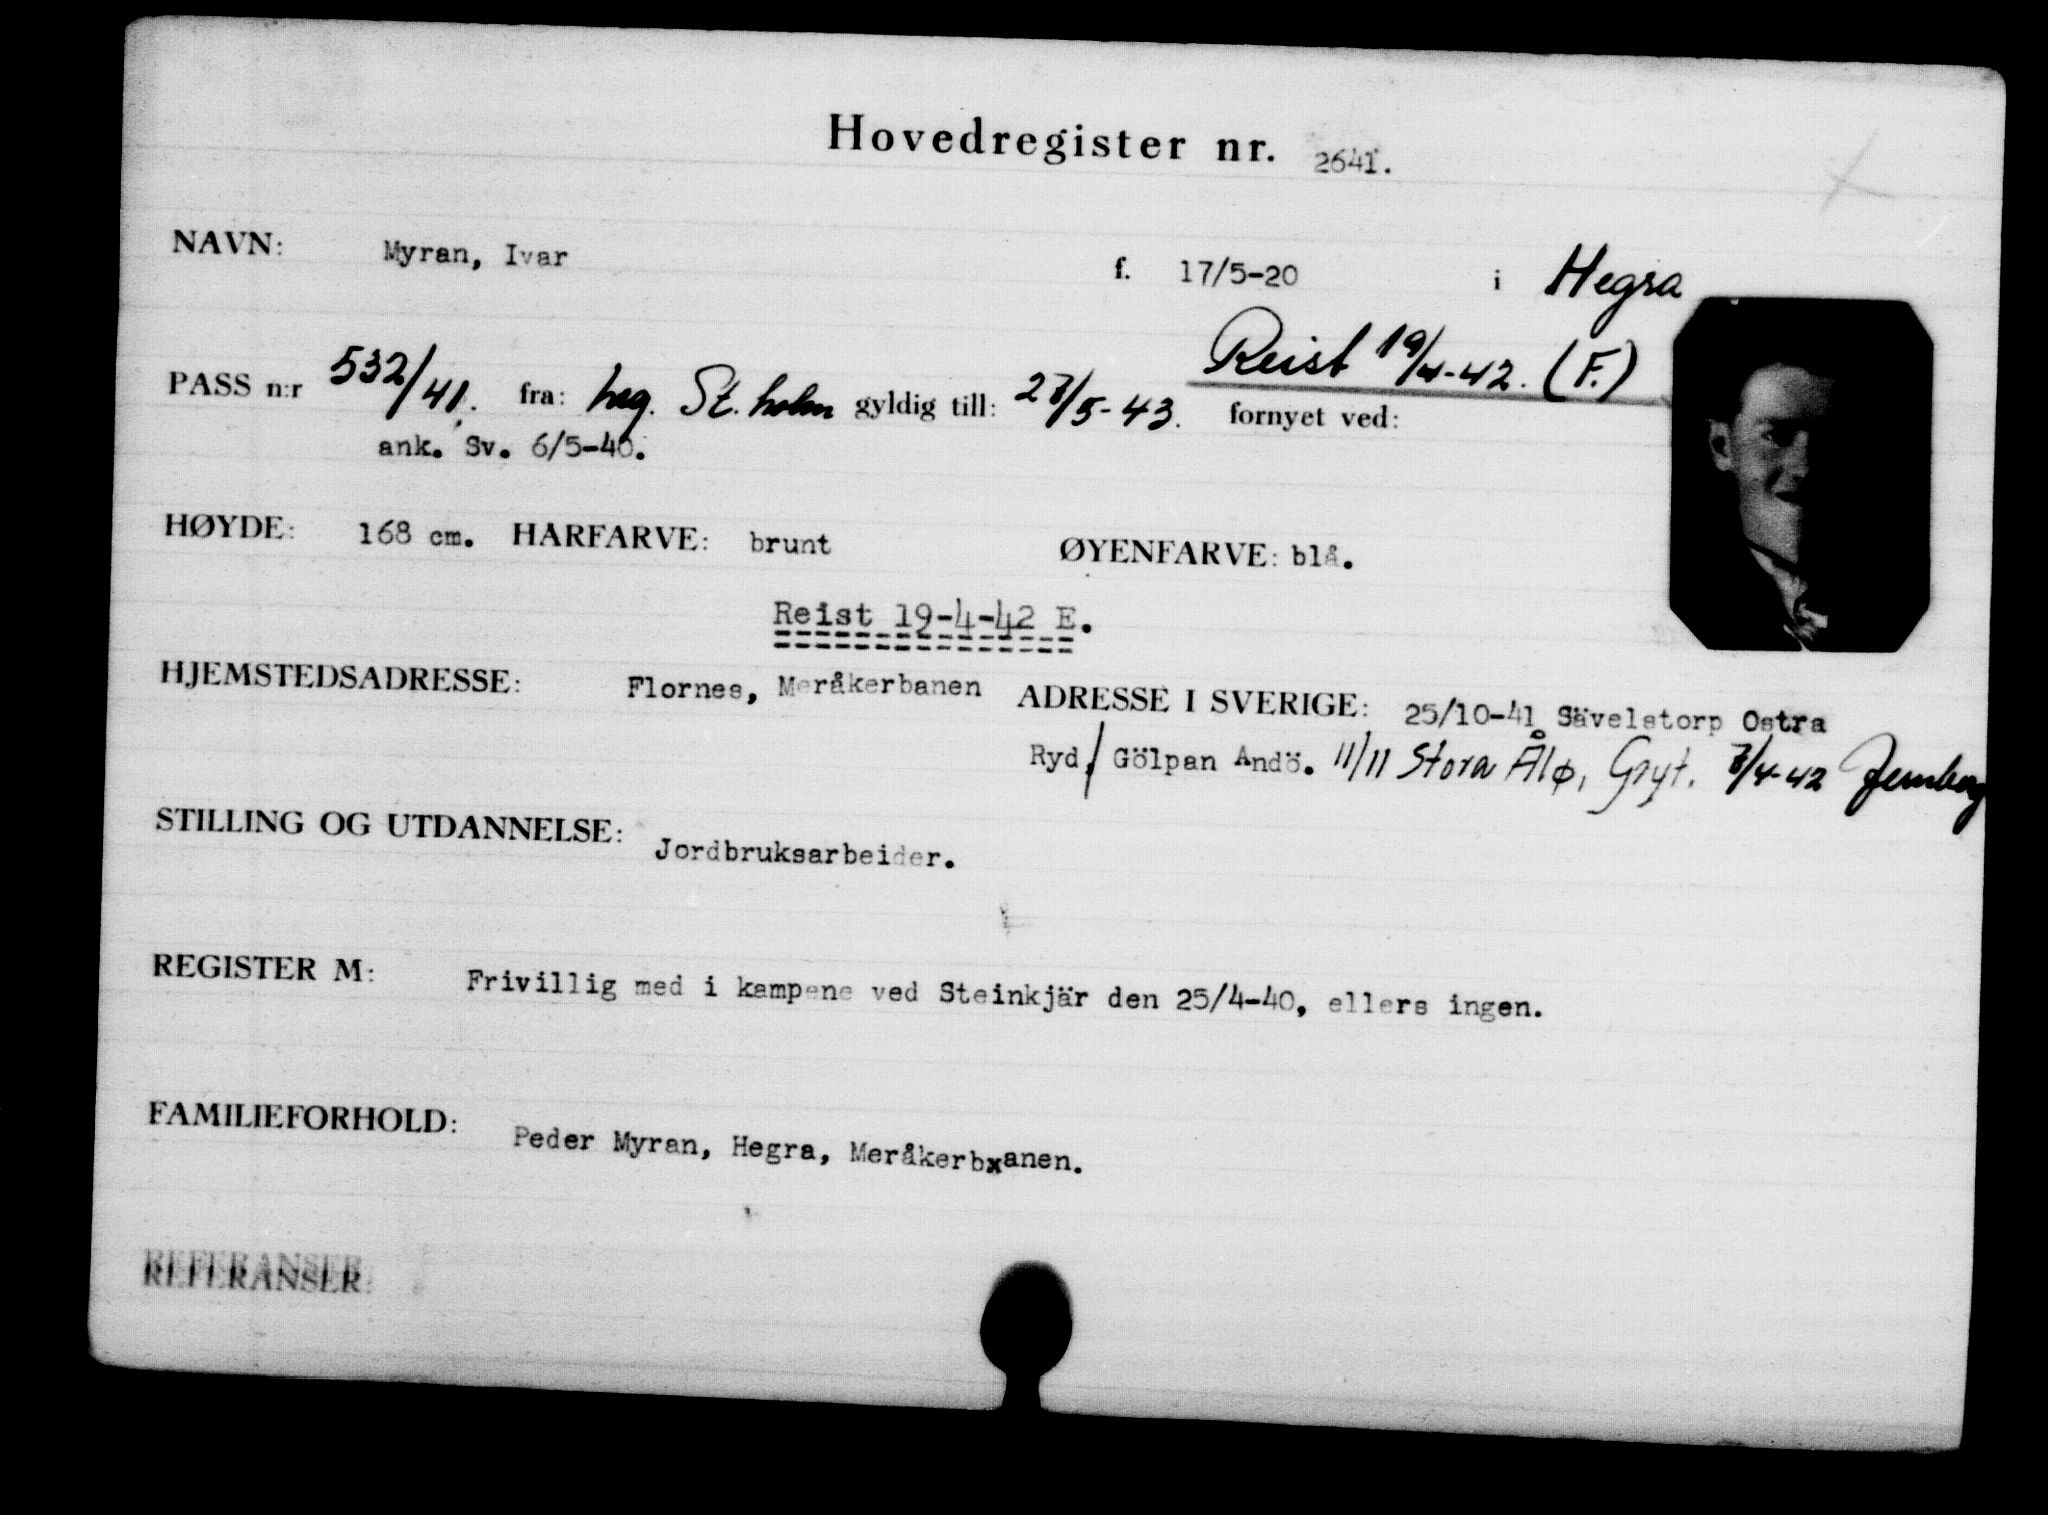 Hovedregister nr. 2641.
NAVN: Myran, Ivar f. 17/5-20 i Hegra
Reist 19/4-42. (F.)
PASS n:r 532/41. fra: Leg. St.holm gyldig till: 27/5-43. fornyet ved:
ank. Sv. 6/5-40.
HØYDE: 168 cm. HARFARVE: brunt ØYENFARVE: blå.
Reist 19-4-42 E.
HJEMSTEDSADRESSE: Flornes, Meråkerbanen ADRESSE I SVERIGE: 25/10-41 Sävelstorp Ostra
Ryd/ Gölpan Andö. 11/11 Stora Ålø, Gryt. 7/4-42
STILLING OG UTDANNELSE: Jordbruksarbeider.
REGISTER M: Frivillig med i kampene ved Steinkjär den 25/4-40, ellers ingen.
FAMILIEFORHOLD: Peder Myran, Hegra, Meråkerbxanen.
REFERANSER: